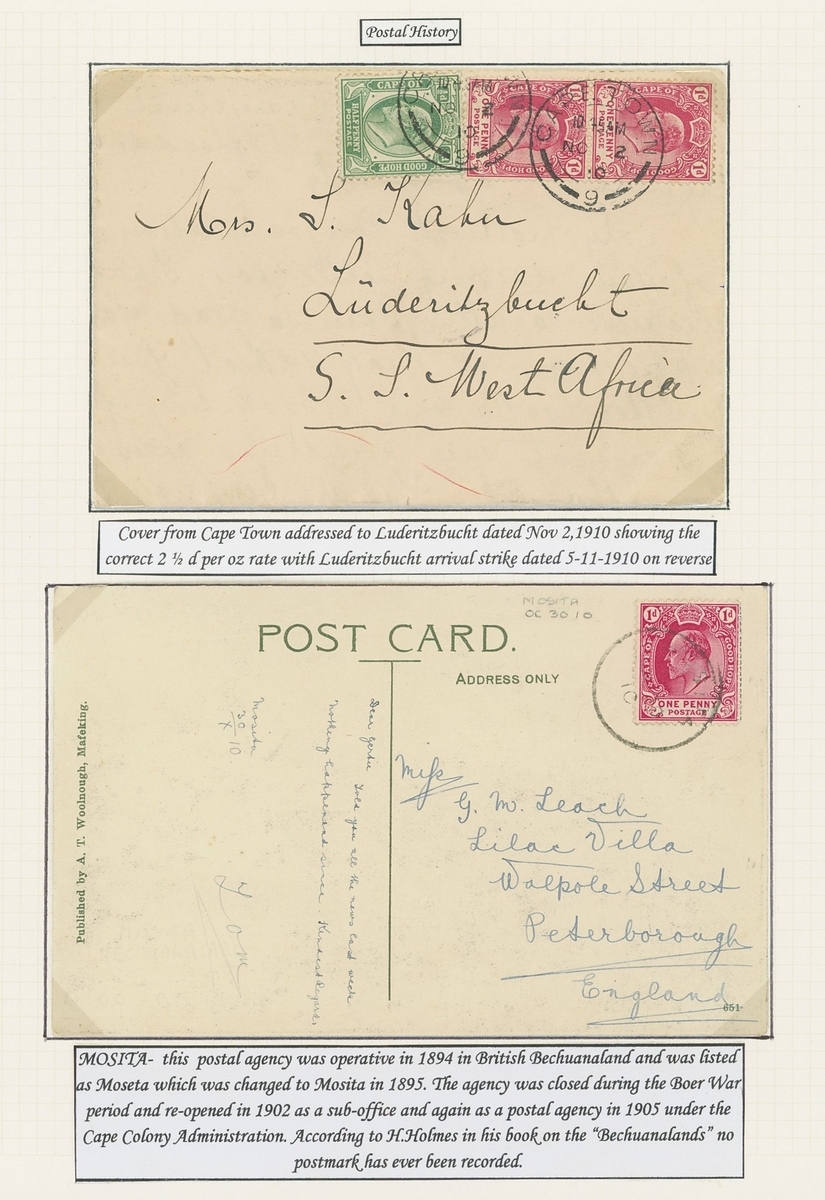 Postal History
CAPE OF
HALFPENNY
POSTAGE
GOOD HOPE
ONE PENNY
POSTAGE
1d
1d
1d
ONE PENNY
POSTAGE
1d
CAPE TOWN
10 45 AM
NO 2
10
9
Mrs. S. Kahn
Lüderitzbucht
S. S. West Africa
Cover from Cape Town addressed to Luderitzbucht dated Nov 2,1910 showing the
correct 2 ½ d per oz rate with Luderitzbucht arrival strike dated 5-11-1910 on reverse
MOSITA
OC 30 10
POST CARD.
ADDRESS ONLY
1d 1d
CAPE OF GOOD HOPE
ONE PENNY
POSTAGE
Published by A. T. Woolnough, Mafeking.
Mosita
30
X 10
Dear Gertie Told you all the news last week
nothing happened since Kindest Regards
Tom
Miss
G. M. Leach
Lilac Villa
Walpole Street
Peterborough
England
651
MOSITA- this postal agency was operative in 1894 in British Bechuanaland and was listed
as Moseta which was changed to Mosita in 1895. The agency was closed during the Boer War
period and re-opened in 1902 as a sub-office and again as a postal agency in 1905 under the
Cape Colony Administration. According to H.Holmes in his book on the “Bechuanalands” no
postmark has ever been recorded.